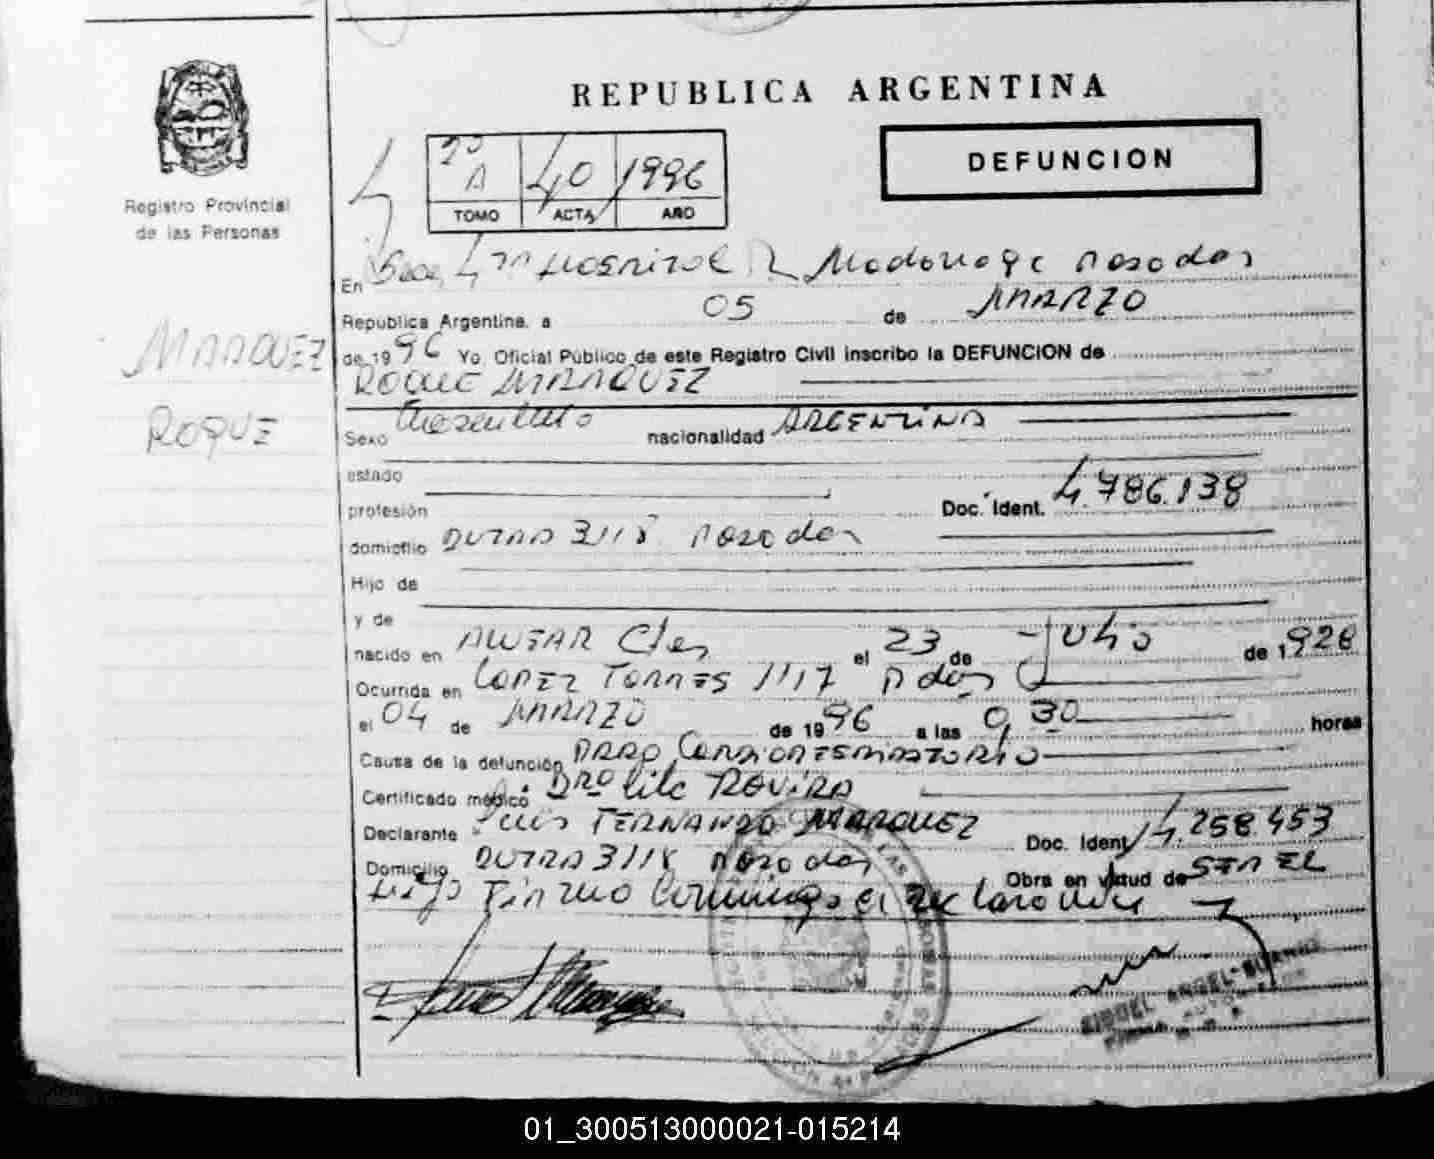 REPUBLICA ARGENTINA
DEFUNCION
A 40 1996
TOMO ACTA AÑO
Registro Provincial
de las Personas
En Hospital R Madariaga Posadas
República Argentina, a 05 de MARZO
de 1996 Yo, Oficial Público de este Registro Civil inscribo la DEFUNCION de
ROQUE MARQUEZ
MARQUEZ
ROQUE
Sexo Masculino nacionalidad ARGENTINA
estado
profesión Doc. Ident. 4.786.138
domicilio 3118 Posadas
Hijo de
y de
nacido en ALVEAR Ctes el 23 de Julio de 1928
Ocurrida en LOPEZ TORRES 1117 Pdas
el 04 de MARZO de 1996 a las 0,30 horas
Causa de la defunción PARO CARDIORESPIRATORIO
Certificado médico Dra Lila ROVIRA
Declarante Luis FERNANDO MARQUEZ Doc. Ident 14.258.453
Domicilio 3118 Posadas Obra en virtud de SER EL
Hijo Firmo Conmigo el declarante
01_300513000021-015214